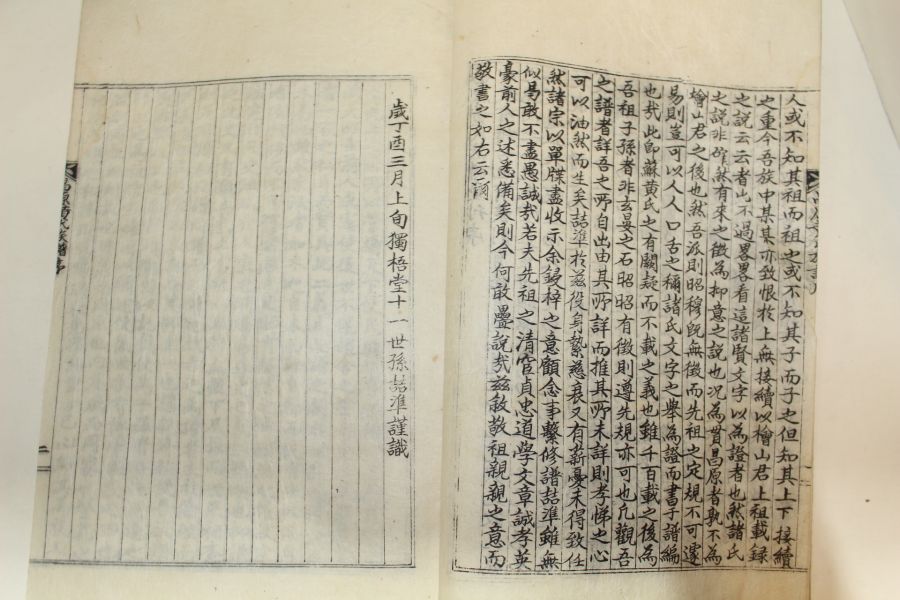 人或不知其祖而祖之或不知其子而子之但知其上下接續
之重今吾族中某某亦致恨於上無接續以檜山君上祖載錄
之說云云者此不過畧畧看這諸賢文字以為證者也然諸氏
之說非確然有來之徵為抑意之說也况為貫昌原者孰不為
檜山君之後也然吾派則昭穆旣無徵而先祖之定規不可遽
易則豈可以人人口舌之稱諸氏文字之擧為證而書于譜編
也哉此卽蘇黃氏之有闕疑而不載之義也雖千百載之後為
吾祖子孫者非玄晏之石昭昭有徵則遵先規亦可也凡觀吾
之譜者詳吾之所自出由其所詳而推其所未詳則孝悌之心
可以油然而生矣喆準於玆役身縶慈衰又有薪憂未得致任
然諸宗以單牒盡收示余鋟梓之意顧念事繫修譜喆準雖無
似曷敢不盡愚誠哉若夫先祖之清宦貞忠道學文章誠孝英
豪前人之述悉備矣則今何敢疊說哉玆敍敬祖親親之意而
敬書之如右云爾
歲丁酉三月上旬獨梧堂十一世孫喆準謹識